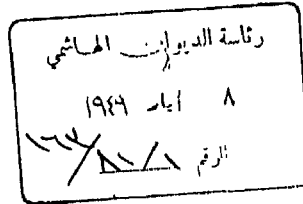 رئاسة الديوان الهاشمي
٨ ايار ١٩٤٩
الرقم